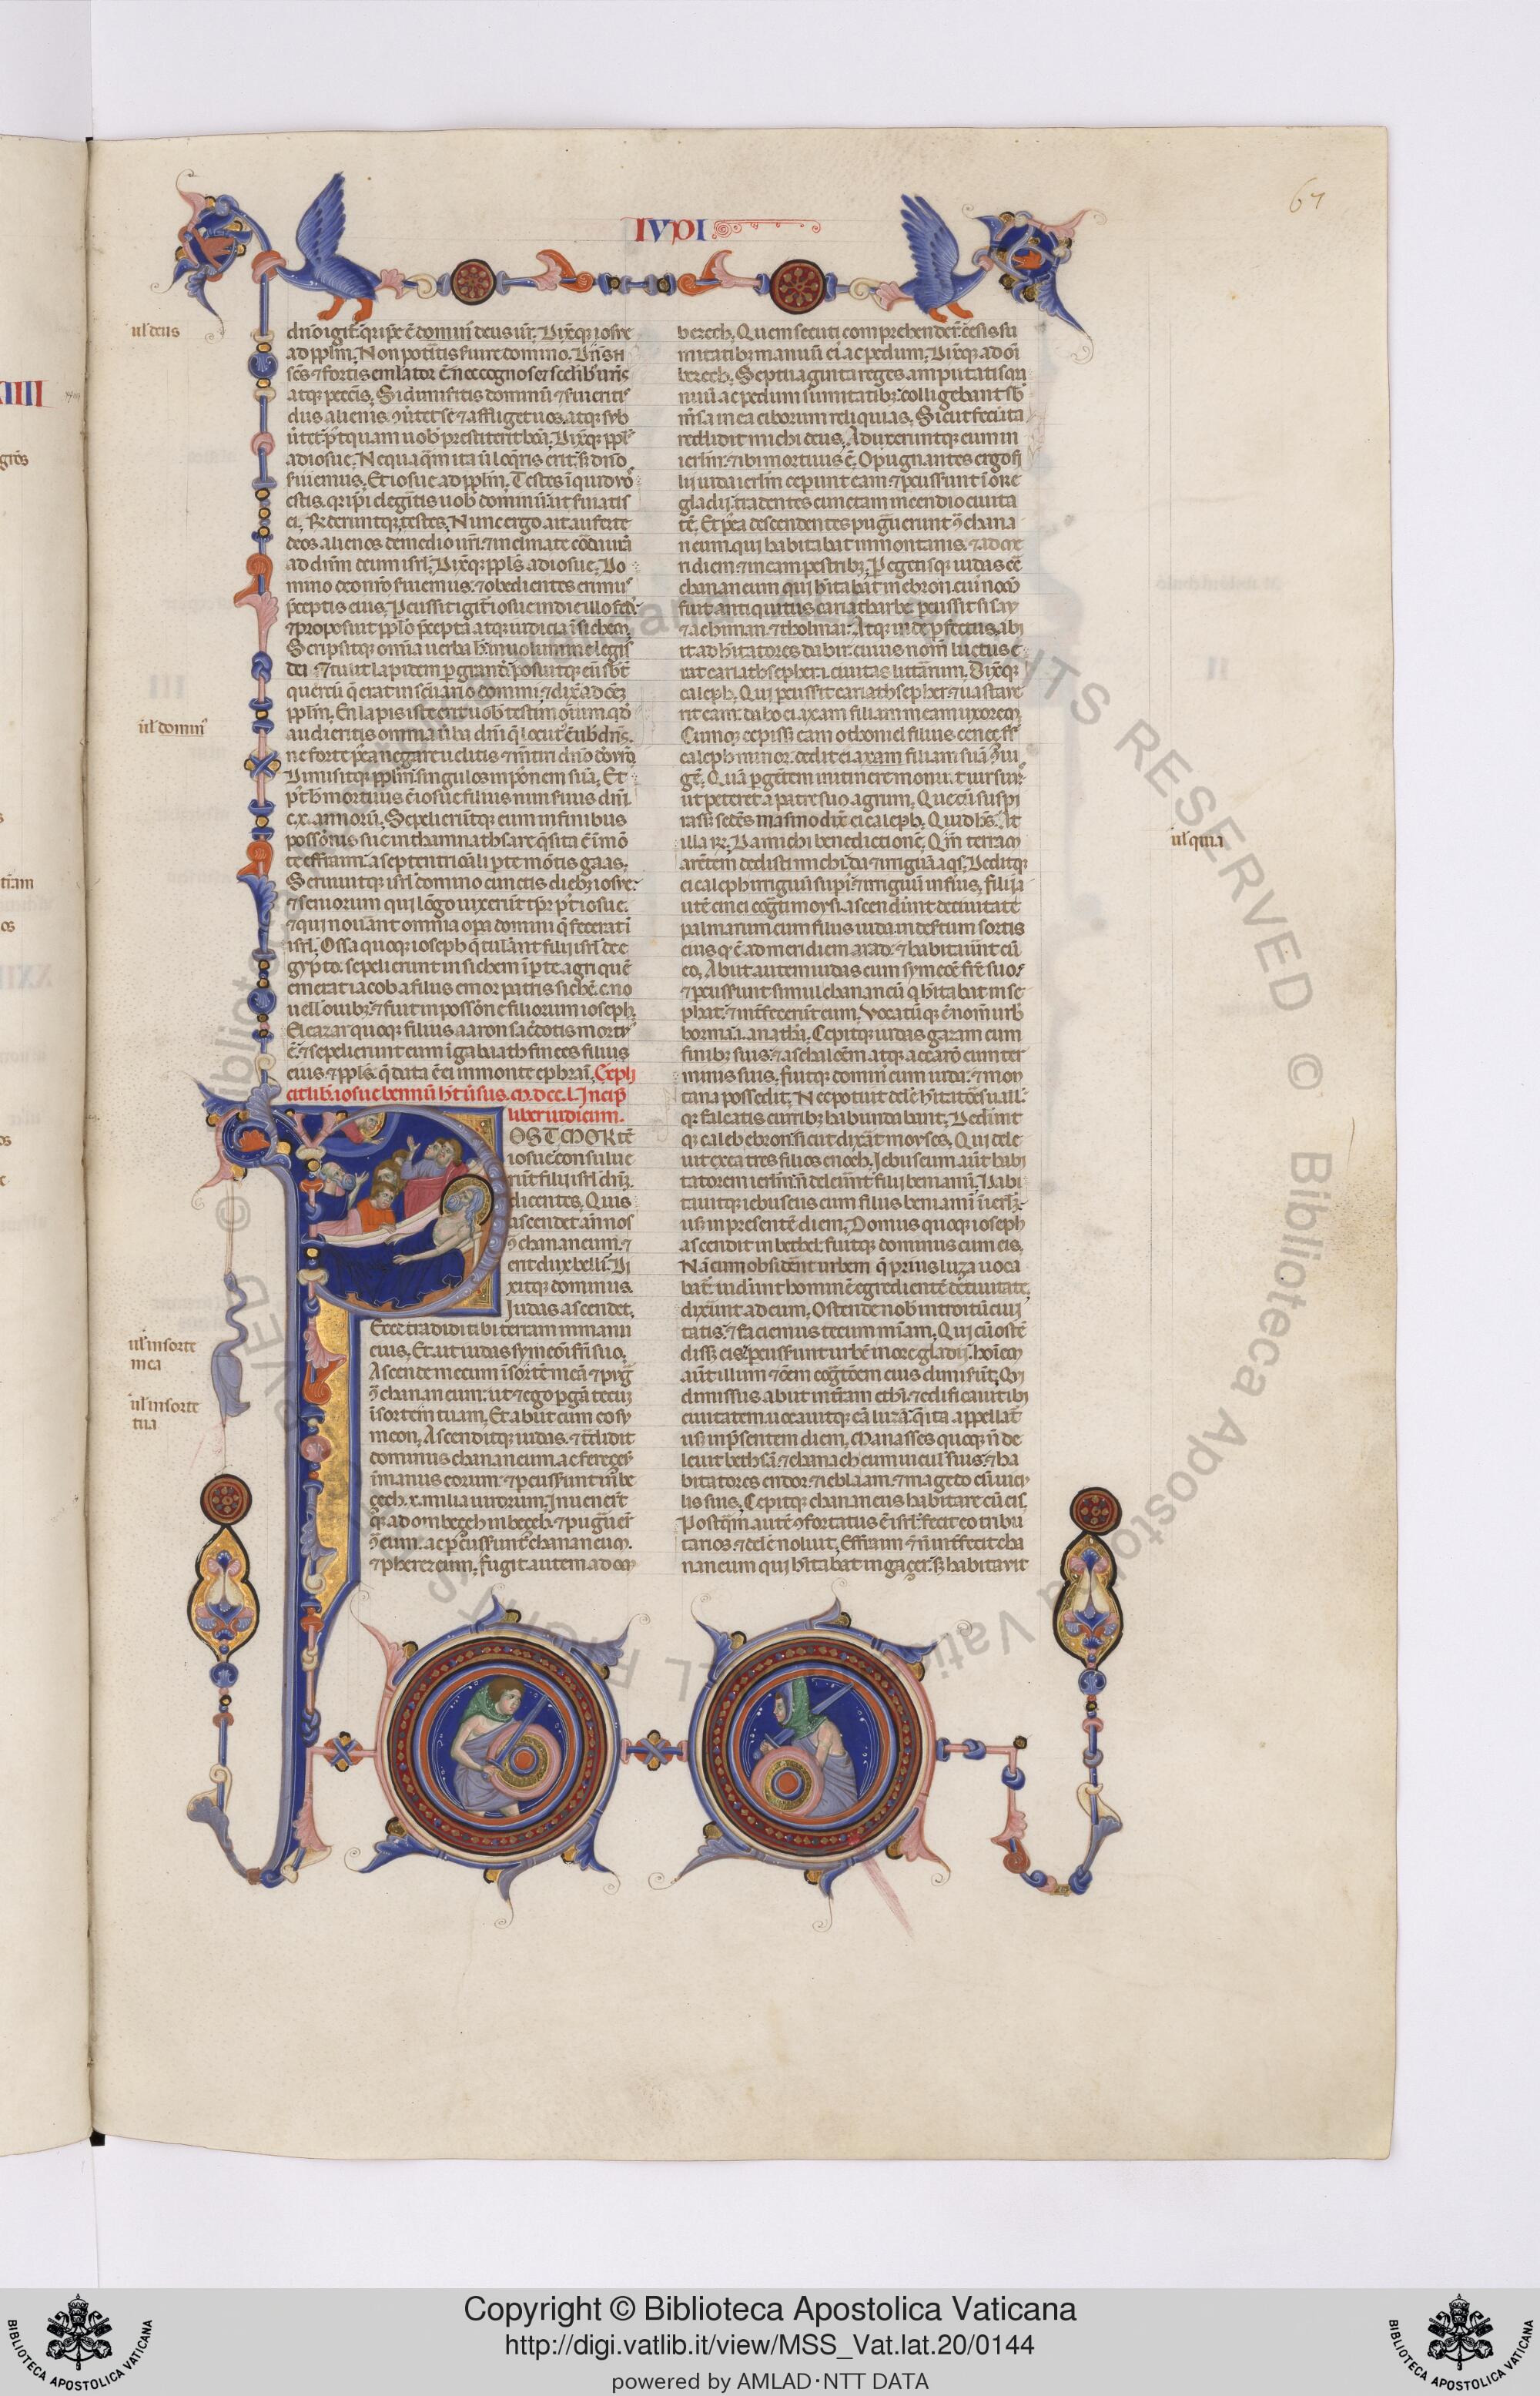 IVDI
67
ul deus
dño igit̃ q̃ ip̃e ẽ domiñ deus ur̃. Dixitq; iosue
ad pplm̃. Non potẽtis seruire domino. Dñs eñ
sc̃s ⁊ fortis emlator ẽ nec cognoscet scelib; ur̃is
atq; pecc̃is. Si dimisitis dominũ ⁊ seruieritis
diis alienis ⁊ affliget uos atq; sub
postquam uob̃ prestiterit bõa. Dixitq; ppl̃s
ad iosue. Nequaq̃m ita
seruiemus. Et iosue ad pplm̃. Testes inquid uos
estis. q; ip̃i elegeritis uob̃ dominũ ut seruiatis
ei. Rñderuntq; testes. Nunc ergo ait auferte
deos alienos de medio ur̃i. ⁊ inclinate corda ur̃a
ad dñm deum isrl̃. Dixitq; ppl̃s ad iosue. Do
mino deo nr̃o seruiemus. ⁊ obedientes erimus
p̃ceptis eius. Pcussit igit̃ iosue in die illo fedus
⁊ proposuit pplo p̃cepta atq; iudicia in sichem.
Scripsitq; omnia uerba hec in uolumine legis
dei. ⁊ tulit lapidem p grandẽ posuitq; eũ subt̃
quercũ q̃ erat in sc̃uario domini. ⁊ dixit ad oẽm
pplm̃. En lapis iste erit uob̃ testimonium. qd̃
ul domini
audieritis omnia ũba dñi q̃ locut̃ ẽ uob̃ dñs.
ne forte p̃ea negare uelitis ⁊ mentiri dño dõ ur̃o.
Dimisitq; pplm̃ singulos in possessionem suã. Et
p̃t hec mortuus ẽ iosue filius nun seruus dñi
c.x. annorũ. Sepelieruntq; eum in finibus
possessionis sue in thamnathsare q̃ sita ẽ in mõ
te effraim. a septentrionali parte mõtis gaas.
Seruiuitq; isrl̃ domino cunctis dieb; iosue.
⁊ seniorum qui lõgo uixerũt tp̃r p̃t iosue.
⁊ qui nouerant omnia opa domini q̃ fecerat ĩ
isrl̃. Ossa quoq; ioseph q̃ tulerant filii isrl̃ de e
gypto. sepelierunt in sichem ĩ parte agri quẽ
emerat iacob a filiis emor patris sichẽ. c. no
uellis ouib;. ⁊ fuit in possessione filiorum ioseph.
Eleazar quoq; filius aaron sacerdotis mortuus
ẽ. ⁊ sepelierunt eum ĩ gabaath finees filius
eius. ⁊ ppl̃s. q̃ data ẽ ei in monte ephrai. Expli
cit lib̃. iosue bennũ ht̃ ũsus. M.dcc.l. Incip̃
liber iudicum.
POST MORTẽ
iosue consulue
rũt filii isrl̃ dñm.
dicentes. Quis
ascendet añ nos
ꝯ̃ chananeum. ⁊
erit dux belli. Di
xitq; dominus.
Iudas ascendet.
Ecce tradidi tibi terram in manu
eius. Et ait iudas symeoni fr̃i suo.
ul in sorte
mea
Ascende mecum ĩ sortẽ meã ⁊ pug̃
ꝯ̃ chananeum. ut ⁊ ego pgã tecũ
ul in sorte
tua
ĩ sortem tuam. Et abiit cum eo sy
meon. Ascenditq; iudas. ⁊ tradidit
dominus chananeum. ac ferezeũ
ĩ manus eorum. ⁊ pcusserunt in be
çech. x. milia uirorum. Inuenert̃
q; adonibeçech in beçech. ⁊ pugũer̃t
ꝯ̃ eum. ac pcusserunt chananeum.
⁊ pherezeum. fugit autem adoni
bezech. Quem secuti comprehender̃t cesis su
mitatib; manuũ ei. ac pedum. Dixitq; adoni
bezech. Septuaginta reges amputatis ma
nuũ ac pedum summitatib;. colligebant sb̃
m̃sa mea ciborum reliquias. Sicut feci ita
reddidit michi deus. Adduxeruntq; eum in
ierlm̃. ⁊ ibi mortuus ẽ. Opugnantes ergo fi
lii iuda ierlm̃ ceperunt eam. ⁊ pcusserunt ĩ ore
gladii. tradentes cunctam incendio ciuita
tẽ. Et p̃ea descendentes pugũerunt ꝯ̃ chana
neum. qui habitabat in montanis. ⁊ ad me
ridiem. ⁊ in campestrib;. Pergensq; iudas ꝯ̃
chananeum qui hĩtabat in ebron. cui nom̃
fuit antiquitus cariatharbe. pcussit sisay
⁊ achiman. ⁊ tholmai. Atq; inde pfectus abi
it ad hĩtatores dabir. cuius nom̃ uetus ẽ
rat cariathsepher. i. ciuitas litt̃arum. Dixitq;
caleph. Qui pcusserit cariathsepher. ⁊ uastaue
rit eam. dabo ei axam filiam meam uxorem.
Cumq; cepiss; eam othoniel filius cenec fr̃
caleph minor. dedit ei axam filiam suã ꝯiu
gẽ. Quã pgẽtem in itinere monuit uir suus
ut peteret a patre suo agrum. Que cũ suspi
rass; sedẽs in asino dix̃ ei caleph. Quid hẽs. At
ul quia
illa rñ. Da michi benedictionẽ. Qm̃ terram
arẽtem dedisti michi. da ⁊ irriguã aq̃s. Deditq;
ei caleph irriguũ supi. ⁊ irriguũ inferius. filii a
utẽ cinei cog̃ti moysi ascenderunt de ciuitate
palmarum cum filiis iuda. in desertum sortis
eius q̃ ẽ ad meridiem arad. ⁊ habitauerunt cũ
eo. Abiit autem iudas cum symeoẽ fr̃e suo.
⁊ pcusserunt simul chananeũ q̃ hĩtabat in se
phat. ⁊ interfecer̃t eum. Vocatũq; ẽ nom̃ urb̃
horma. i. anathẽa. Cepitq; iudas gazam cum
finib; suis. ⁊ aschalonem atq; accarõ cum ter
minis suis. fuitq; domiñ cum iuda. ⁊ mon
tana possedit. Nec potuit delẽ hĩtatores uall̃.
q; falcatis currib; habundabant. Dederunt
q; caleb ebron. sicut dixerat moyses. Qui dele
uit ex ea tres filios enoch. Iebuseum aũt habi
tatorem ierlm̃ ñ deleuer̃t filii beniamin. Habi
tauitq; iebuseus cum filiis beniamin ĩ ierlm̃.
usq; in presentẽ diem. Domus quoq; ioseph
ascendit in bethel. fuitq; dominus cum eis.
Nã cum obsiderent urbem q̃ prius luza uoca
bat̃. uiderunt hominẽ egredientẽ de ciuitate.
dixerunt ad eum. Ostende nob̃ introitũ ciui
tatis. ⁊ faciemus tecum mĩam. Qui cũ ostẽ
diss; eis. pcusserunt urbẽ in ore gladii. hoĩem
aũt illum ⁊ oẽm cog̃toẽm eius dimiserũt. Qui
dimissus abiit in t̃ram ethi. ⁊ edificauit ibi
ciuitatem. uocauitq; eã luzã. q̃ ita appellat̃
usq; in p̃sentem diem. Manasses quoq; ñ de
leuit bethsã. ⁊ thanach cum uicul̃ suis. ⁊ ha
bitatores endor. ⁊ ieblaam. ⁊ magedo cũ uicu
lis suis. Cepitq; chananeus habitare cũ eis.
Postq̃m autẽ ꝯfortatus ẽ isrl̃. fecit eos tribu
tarios. ⁊ delẽ noluit. Effraim ⁊ ñ interfecit cha
naneum qui hĩtabat in gaçer. s; habitauit
Copyright © Biblioteca Apostolica Vaticana
http://digi.vatlib.it/view/MSS_Vat.lat.20/0144
powered by AMLAD·NTT DATA
BIBLIOTECA APOSTOLICA VATICANA
BIBLIOTECA APOSTOLICA VATICANA
© Biblioteca Apostolica Vaticana ALL RIGHTS RESERVED